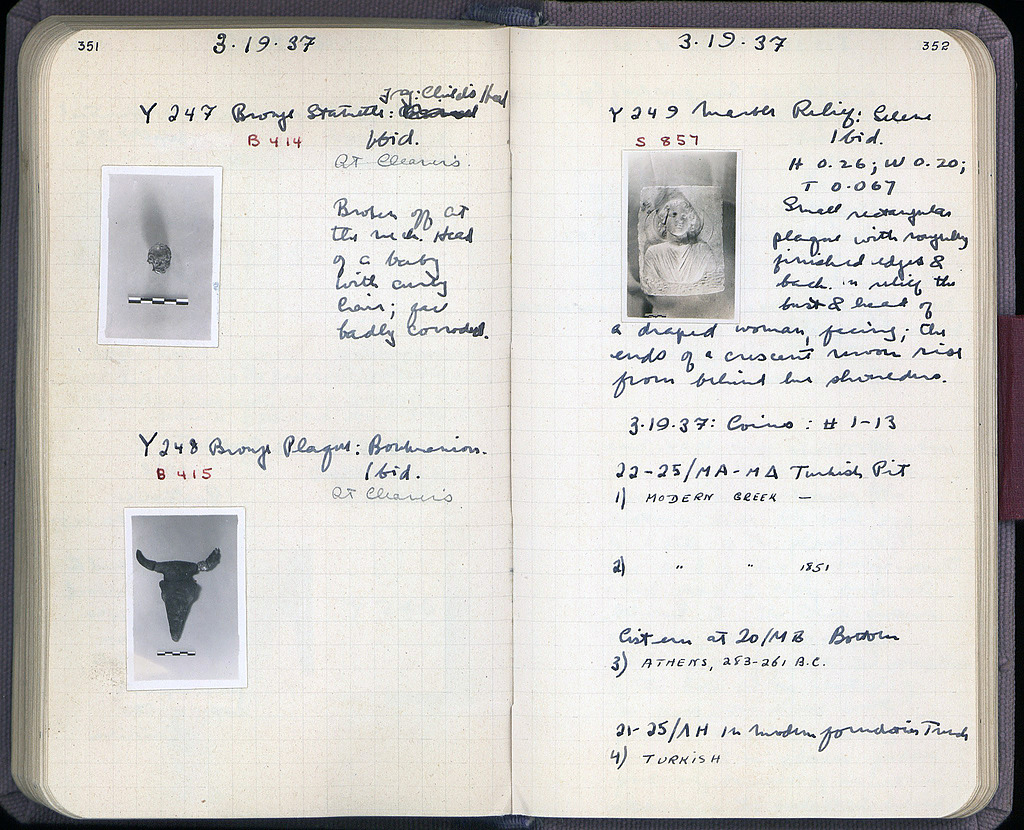 351
3·19·37
Frg: Child's Head
Y 247 Bronze Statuette:
B 414
Ibid.
At Cleaner's
Broken off at
the neck. Head
of a baby
with curly
hair; face
badly corroded.
Y 248 Bronze Plaque: Boukranion.
B 415
Ibid.
At Cleaner's
3·19·37
352
Y 249 Marble Relief: Selene
S 857
Ibid.
H 0.26; W 0.20;
T 0.067
Small rectangular
plaque with roughly
finished edges &
back. In relief the
bust & head of
a draped woman, facing; the
ends of a crescent moon rise
from behind her shoulders.
3·19·37: Coins: # 1-13
22-25/ΜΑ-ΜΔ Turkish Pit
1) MODERN GREEK —
2) " " 1851
Cistern at 20/ΜΒ Bottom
3) ATHENS, 283-261 B.C.
21-25/ΛΗ in modern foundation Trench
4) TURKISH